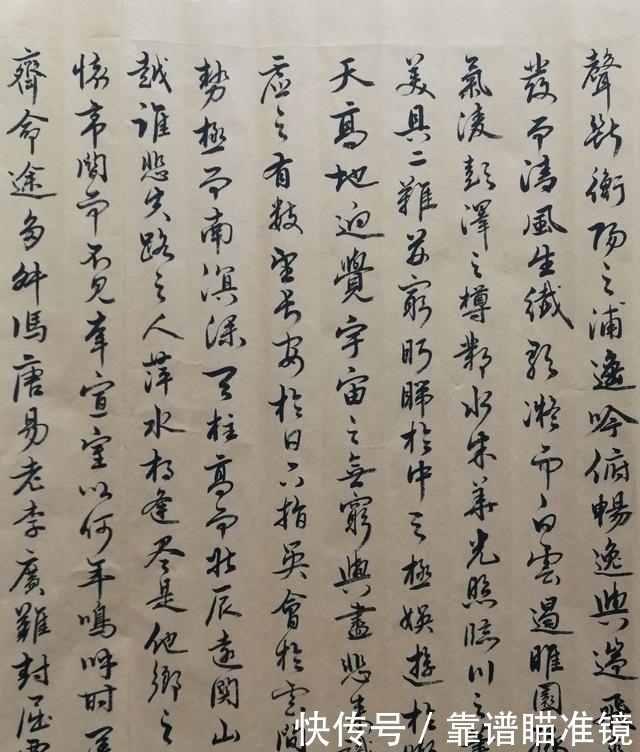 聲斷衡陽之浦遙吟俯暢逸興遄飛
發而清風生纖歌凝而白雲遏睢園
氣凌彭澤之樽鄴水朱華光照臨川之
美具二難并窮眄睇於中天極娛遊於暇
天高地迥覺宇宙之無窮興盡悲來識
虛之有數望長安於日下指吳會於雲間
勢極而南溟深天柱高而北辰遠關山
越誰悲失路之人萍水相逢盡是他鄉之
懷帝閽而不見奉宣室以何年嗚呼時運
齊命途多舛馮唐易老李廣難封屈賈
快传号/靠谱瞄准镜